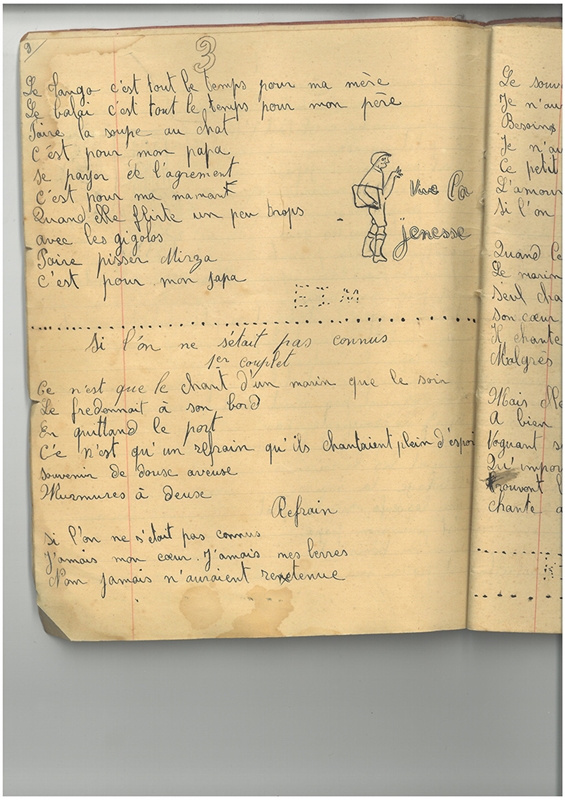 3
Le Tango c'est tout le temps pour ma mère
Le balai c'est tout le temps pour mon père
Faire la soupe au chat
C'est pour mon papa
Se payer de l'agrément
C'est pour ma maman
Quand elle flirte un peu trops
avec les gigolos
Faire pisser Mirza
C'est pour mon papa
Vive la
jenesse
E I M
Si l'on ne sétait pas connus
1er couplet
Ce n'est que le chant d'un marin que le soir
Le fredonnait à son bord
En quittand le port
C'e n'est qu'un refrain qu'ils chantaient plein d'espoi
souvenir de douse aveuse
Murmures à deuse
Refrain
Si l'on ne s'était pas connus
J'amais mon cœur. J'amais mes lèvres
Non jamais n'auraient retenue
Le souv
Je n'au
Besoins
Je n'au
Ce petit
L'amour
Si l'on
Quand le
Le marin
Seul cha
Son cœur
Il chante
Malgrès
Mais elle
A bien
Voguant s
Qu'impor
trouvont l
chante a